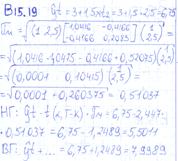 B15.19 ŷt = 3+1,5xt2 = 3+1,5·2,5 = 6,75
= √((1 2,5) (1,0416 -0,4166 / -0,4166 0,2083) (1 / 2,5))
= √((1,0416-1,0415 -0,4166+0,52075) (1 / 2,5))
= √((0,0001 0,10415) (1 / 2,5))
= √0,0001+0,260375 = 0,51037
НГ: ŷt - t(α,T-K) · = 6,75-2,447·
· 0,51037 = 6,75-1,2489 = 5,5011
ВГ: ŷt+... = 6,75+1,2489 = 7,9989